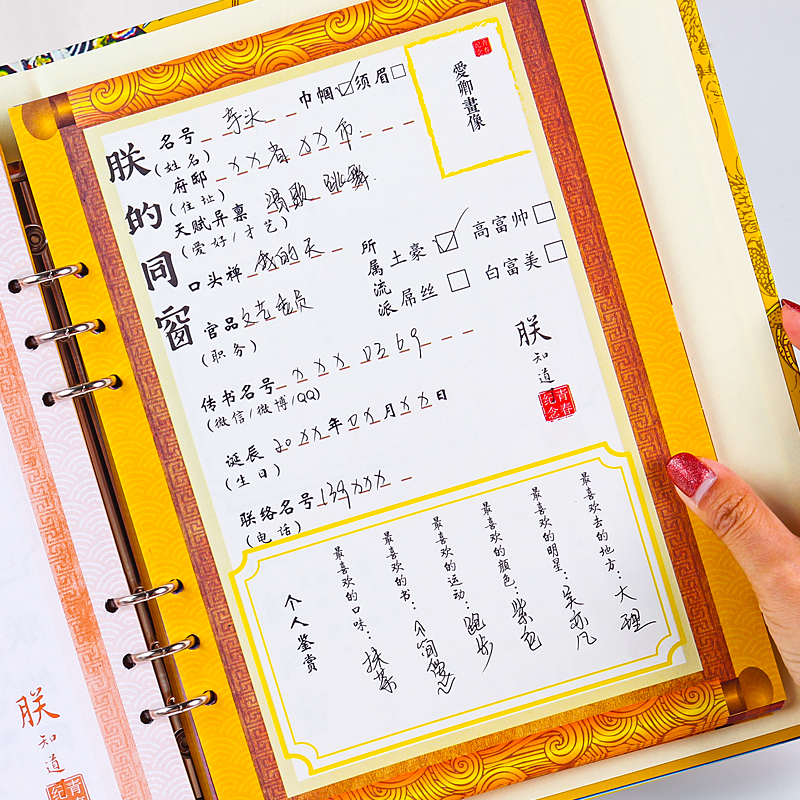 朕的同窗
巾帼 须眉
名号 丫头
(姓名)
府邸 XX省 XX市
(住址)
天赋异禀 唱歌 跳舞
(爱好/才艺)
口头禅 我的天
官品 文艺委员
(职务)
传书名号 XXX 0369
(微信/微博/QQ)
诞辰 20XX年 0X月XX日
(生日)
联络名号 139XXX
(电话)
青春纪念
愛卿畫像
所属流派
土豪 高富帅
屌丝 白富美
朕知道
青春纪念
最喜欢去的地方:大理
最喜欢的明星:吴亦凡
最喜欢的颜色:紫色
最喜欢的运动:跑步
最喜欢的书:人间
最喜欢的口味:抹茶
个人鉴赏
朕知道
青春纪念